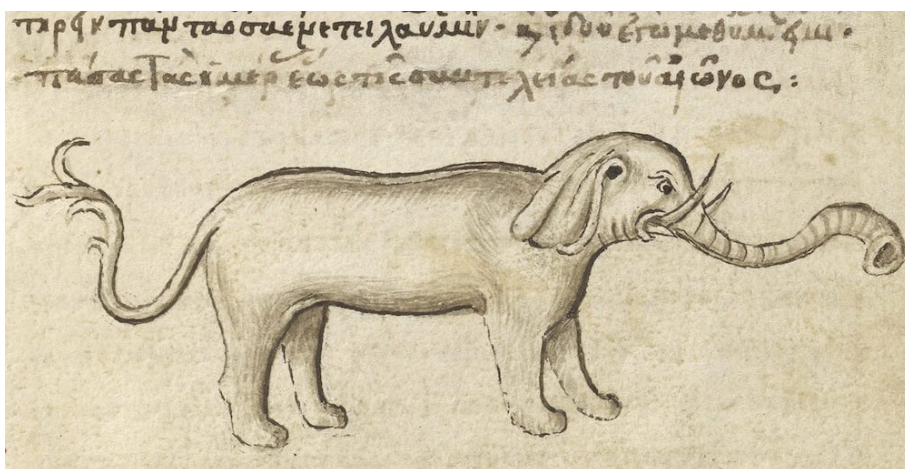 τηρεῖν πάντα ὅσα ἐνετειλάμην ὑμῖν· καὶ ἰδοὺ ἐγὼ μεθ' ὑμῶν εἰμι·
πάσας τὰς ἡμέρ ἕως τῆς συντελείας τοῦ αἰῶνος :